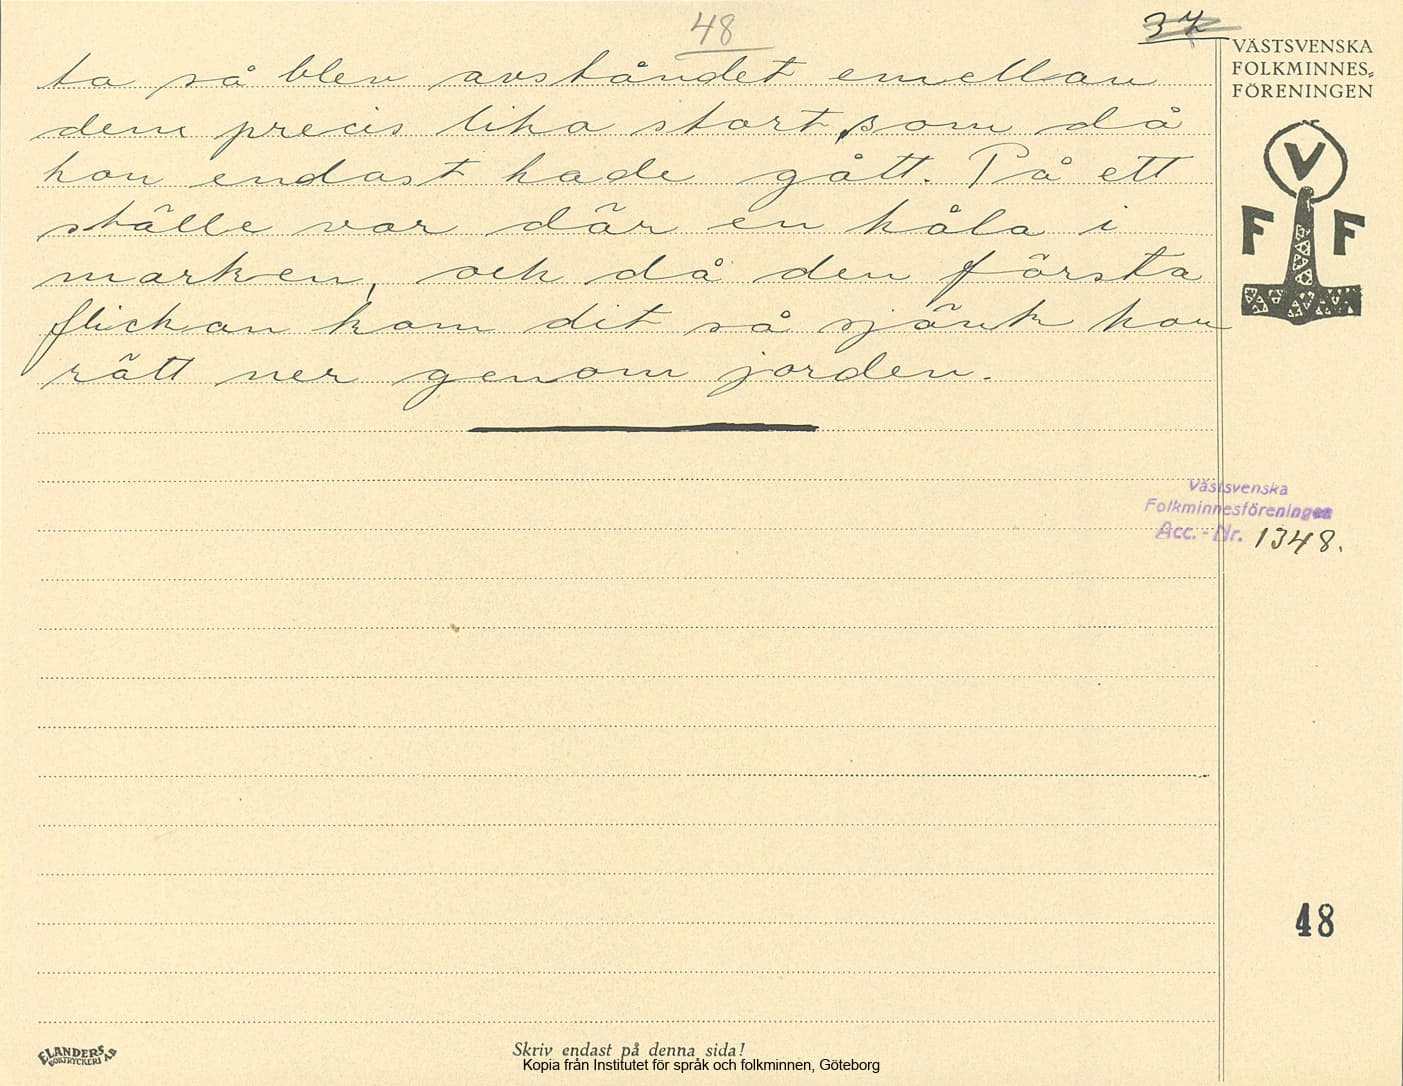 48
37
VÄSTSVENSKA
FOLKMINNES-
FÖRENINGEN
ta så blev avståndet emellan
dem precis lika stort, som då
hon endast hade gått. På ett
ställe var där en håla i
marken, och då den första
flickan kom dit så sjönk hon
rätt ner genom jorden.
V
F F
Västsvenska
Folkminnesföreningen
Acc.-Nr. 1348.
48
ELANDERS
BOKTRYCKERI AB
Skriv endast på denna sida!
Kopia från Institutet för språk och folkminnen, Göteborg